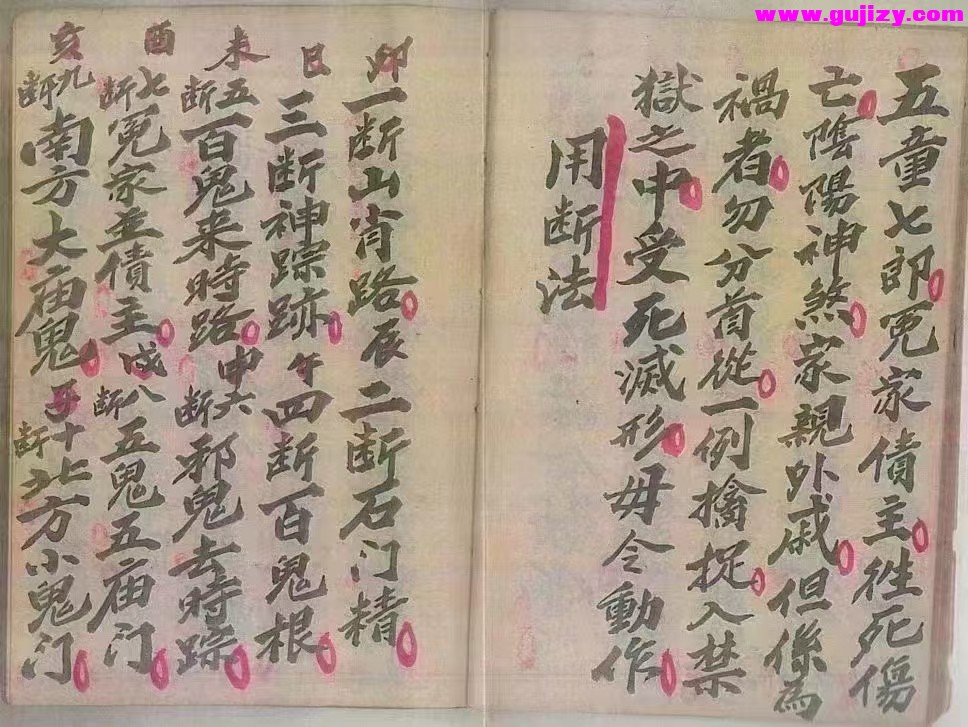 www.gujizy.com
五童七郎冤家債主徃死傷
亡陰陽神煞家親外戚但係為
禍者勿分首從一例擒捉入禁
獄之中受死滅形毋令動作
用断法
卯一断山肖路辰二断石门精
巳三断神踪跡午四断百鬼根
未五断百鬼来時路申六断邪鬼去時踪
酉七断冤家並債主戌八断五鬼五庙门
亥九断南方大庙鬼子十断北方小鬼门